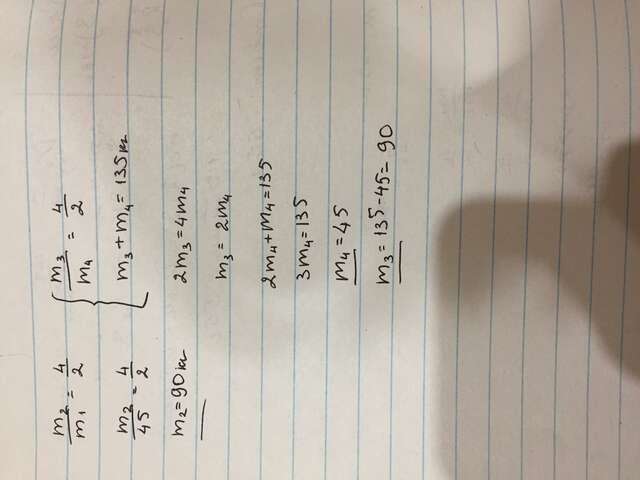 m₂/m₁ = 4/2
m₂/45 = 4/2
m₂ = 90 кг
{ m₃/m₄ = 4/2
m₃ + m₄ = 135 кг
2m₃ = 4m₄
m₃ = 2m₄
2m₄ + m₄ = 135
3m₄ = 135
m₄ = 45
m₃ = 135 - 45 = 90